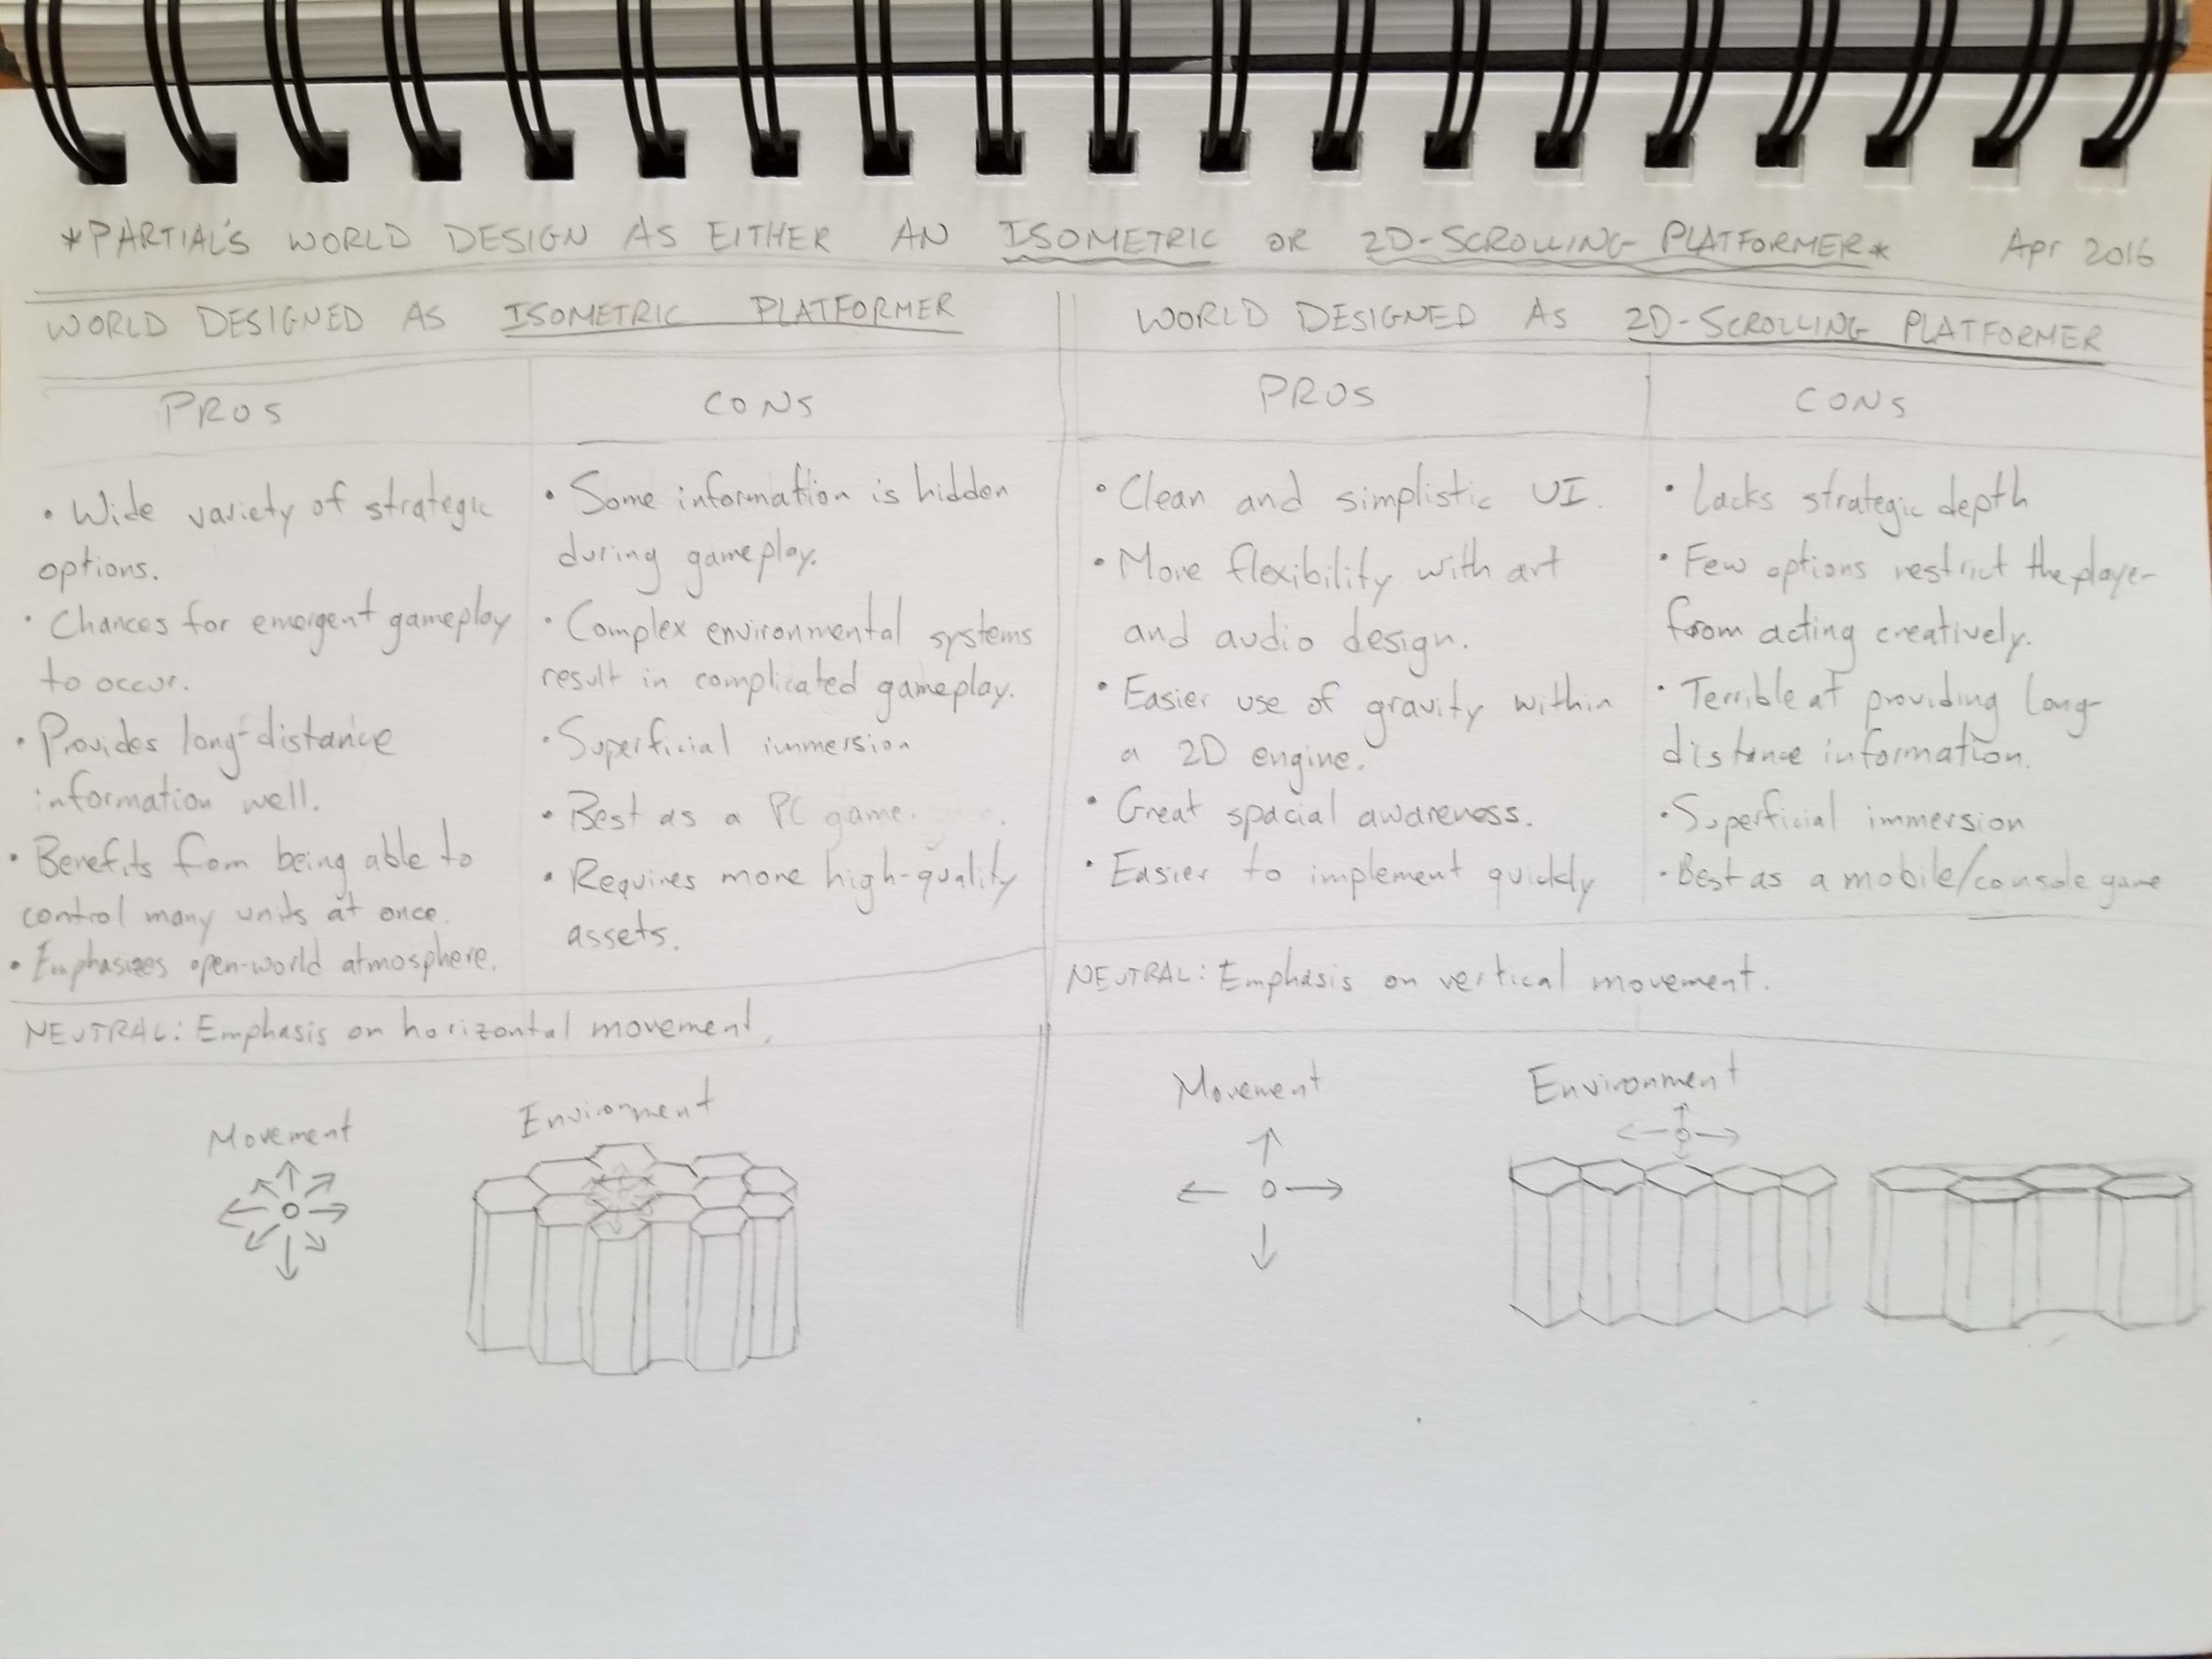 *PARTIAL'S WORLD DESIGN AS EITHER AN ISOMETRIC OR 2D-SCROLLING PLATFORMER*
Apr 2016
WORLD DESIGNED AS ISOMETRIC PLATFORMER
PROS
• Wide variety of strategic
options.
• Chances for emergent gameplay
to occur.
• Provides long-distance
information well.
• Benefits from being able to
control many units at once.
• Emphasizes open-world atmosphere.
CONS
• Some information is hidden
during gameplay.
• Complex environmental systems
result in complicated gameplay.
• Superficial immersion
• Best as a PC game.
• Requires more high-quality
assets.
NEUTRAL: Emphasis on horizontal movement.
Movement
Environment
WORLD DESIGNED AS 2D-SCROLLING PLATFORMER
PROS
• Clean and simplistic UI.
• More flexibility with art
and audio design.
• Easier use of gravity within
a 2D engine.
• Great spacial awareness.
• Easier to implement quickly
CONS
• Lacks strategic depth
• Few options restrict the player
from acting creatively.
• Terrible at providing long-
distance information.
• Superficial immersion
• Best as a mobile/console game
NEUTRAL: Emphasis on vertical movement.
Movement
Environment